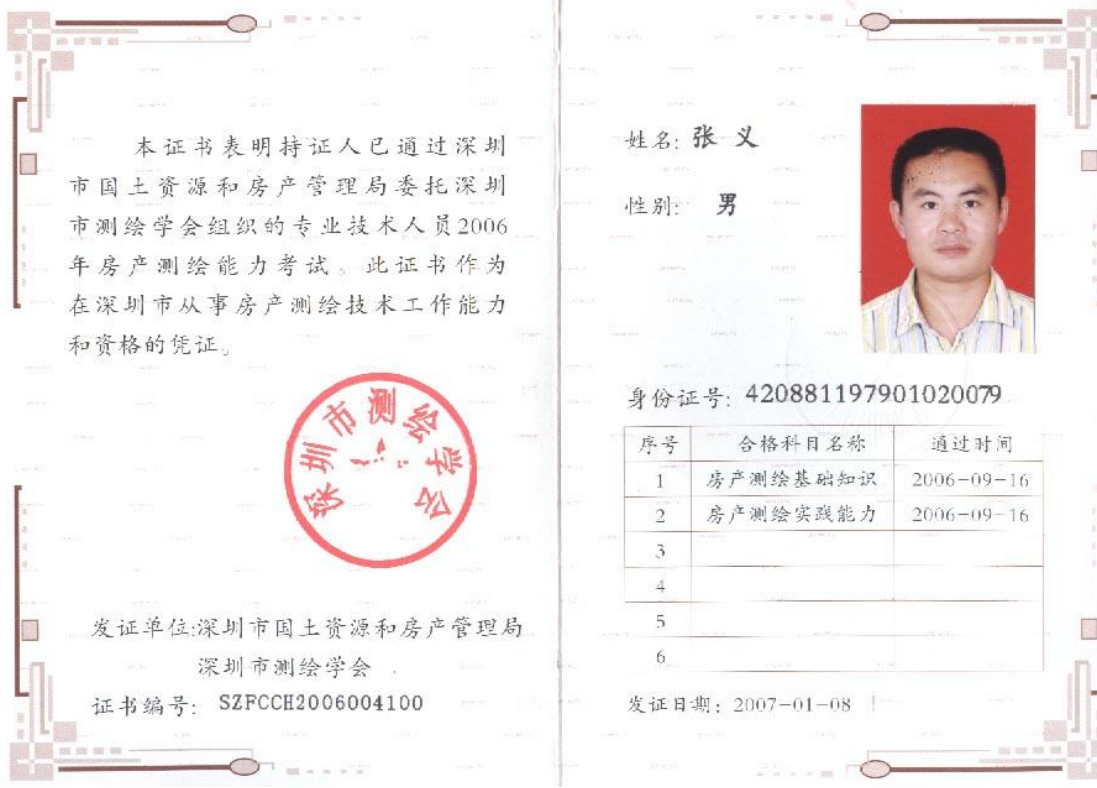 本证书表明持证人已通过深圳
市国土资源和房产管理局委托深圳
市测绘学会组织的专业技术人员2006
年房产测绘能力考试。此证书作为
在深圳市从事房产测绘技术工作能力
和资格的凭证。
深圳市测绘学会
发证单位:深圳市国土资源和房产管理局
深圳市测绘学会
证书编号: SZFCCH2006004100
姓名: 张 义
性别: 男
身份证号: 420881197901020079
序号 合格科目名称 通过时间
1 房产测绘基础知识 2006-09-16
2 房产测绘实践能力 2006-09-16
3
4
5
6
发证日期: 2007-01-08